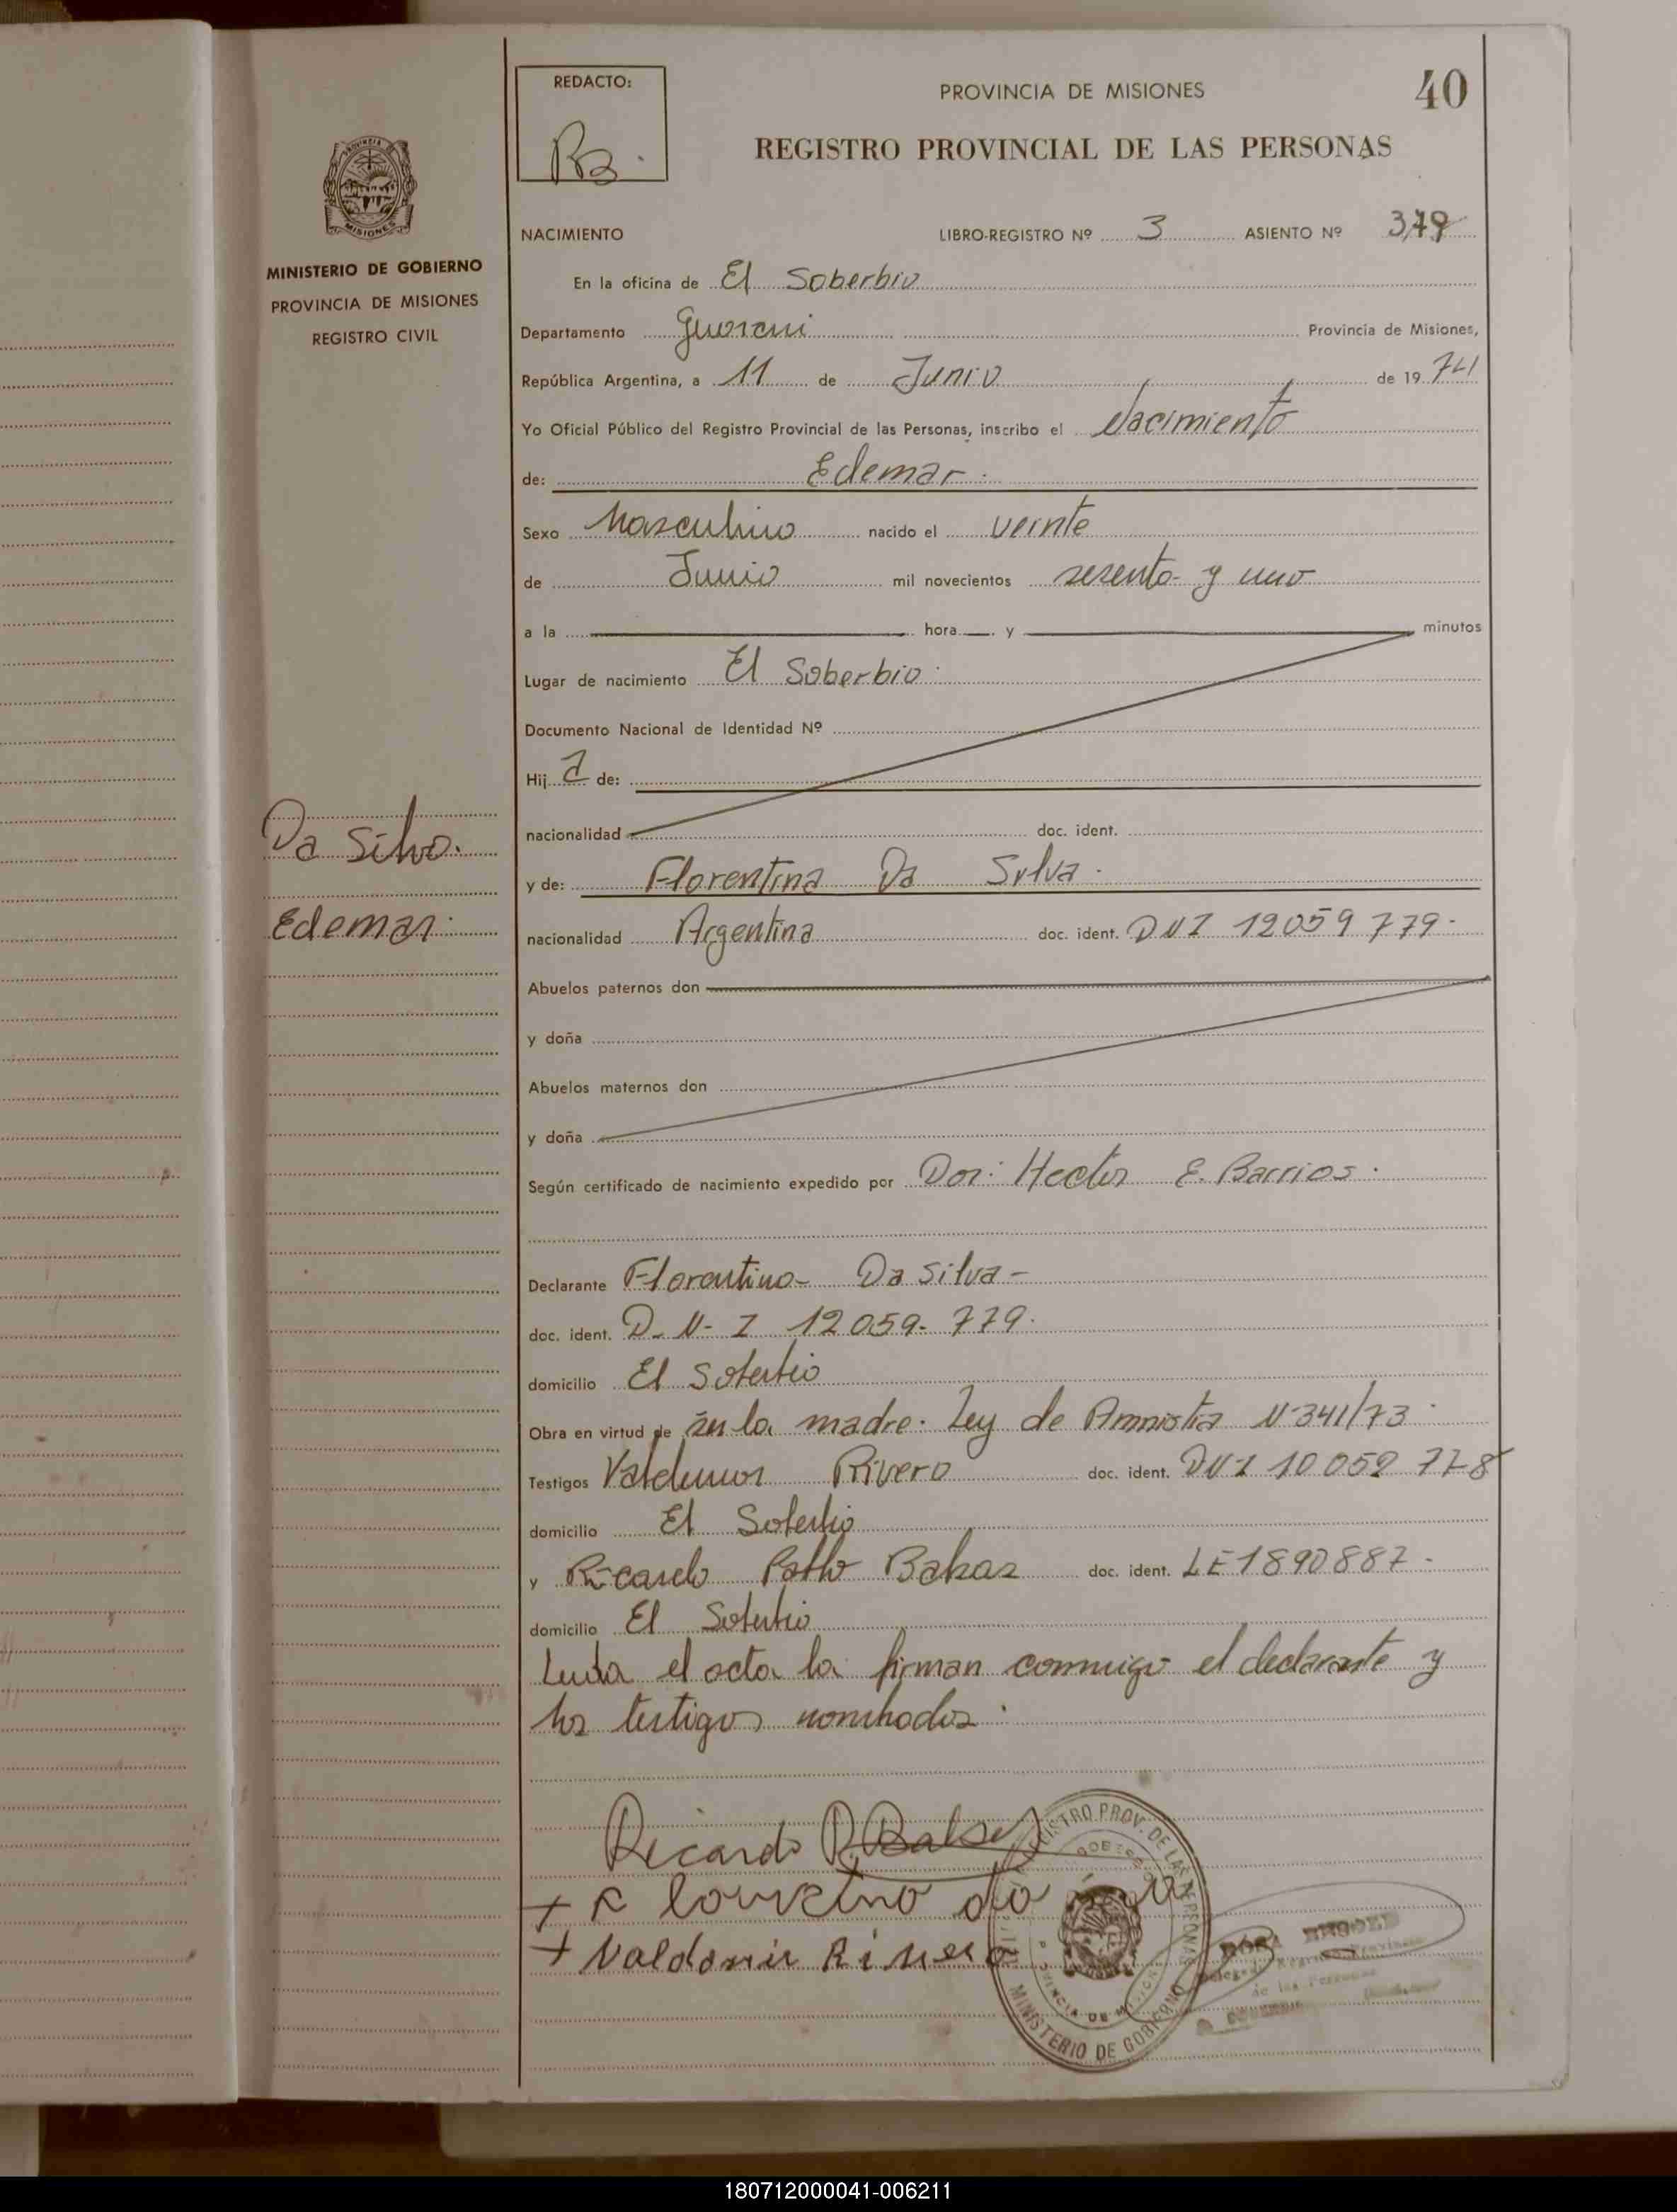 REDACTO:
PROVINCIA DE MISIONES
40
REGISTRO PROVINCIAL DE LAS PERSONAS
MISIONES
MINISTERIO DE GOBIERNO
PROVINCIA DE MISIONES
REGISTRO CIVIL
NACIMIENTO LIBRO-REGISTRO Nº 3 ASIENTO Nº
En la oficina de El Soberbio
Departamento Guarani Provincia de Misiones,
República Argentina, a 11 de Junio de 19 74
Yo Oficial Público del Registro Provincial de las Personas, inscribo el Nacimiento
de: Edemar.
Sexo Masculino nacido el veinte
de Junio mil novecientos sesenta y uno
a la hora y minutos
Lugar de nacimiento El Soberbio
Documento Nacional de Identidad Nº
Hij de:
nacionalidad doc. ident.
Da Silva.
y de: Florentina Da Silva.
Edemar.
nacionalidad Argentina doc. ident. DNI 12059779.
Abuelos paternos don
y doña
Abuelos maternos don
y doña
Según certificado de nacimiento expedido por Dor: Hector E. Barrios.
Declarante Florentina Da Silva-
doc. ident. D-N-I 12059-779.
domicilio El Soberbio
Obra en virtud de ser la madre. Ley de Amnistia N 341/73
Testigos Valdemar Rivero doc. ident. DNI
domicilio El Soberbio
y Ricardo Pablo doc. ident. LE 1890887-
domicilio El Soberbio
Leida el acta la firman conmigo el declarante y
los testigos nombrados.
Ricardo P.
+ Valdomir Rivero
REGISTRO PROV. DE LAS PERSONAS
MINISTERIO DE GOBIERNO
PROVINCIA DE MISIONES
ROSA
180712000041-006211